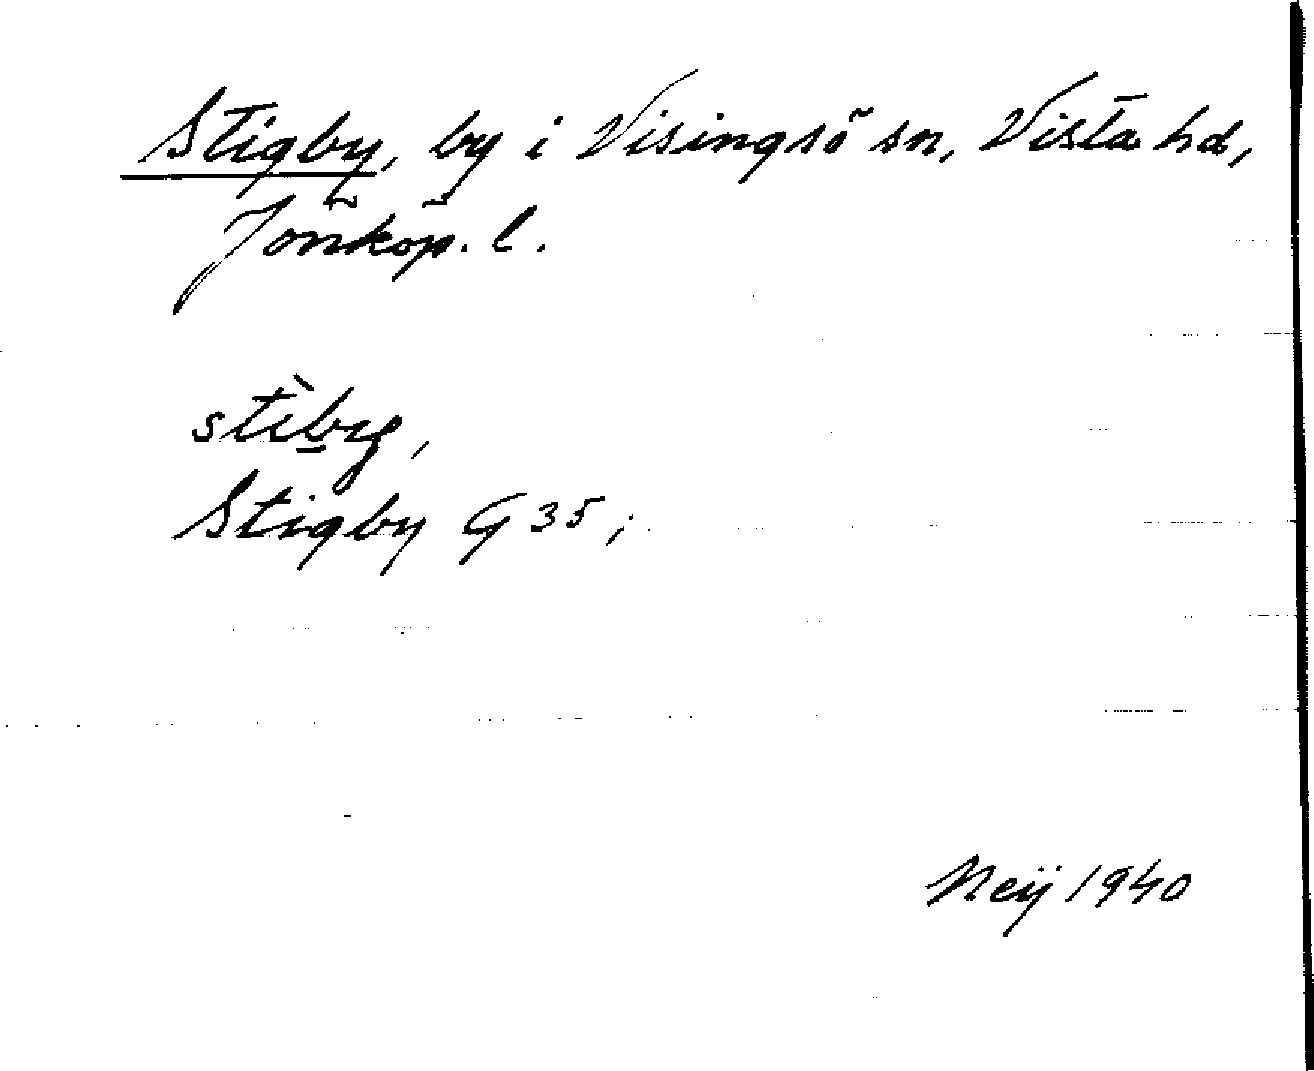 Stigby, by i Visingsö sn, Vista hd,
Jönköp. l.
stìby,
Stigby G 35;
Neij 1940